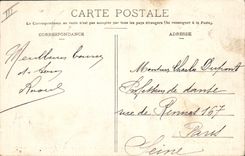 CARTE POSTALE
La Correspondance au recto n'est pas acceptée par tous les pays étrangers (Se renseigner à la Poste)
CORRESPONDANCE
ADRESSE
Meilleurs
Monsieur Charles Dupont
Professeur de danse
rue de 167
Paris
Seine